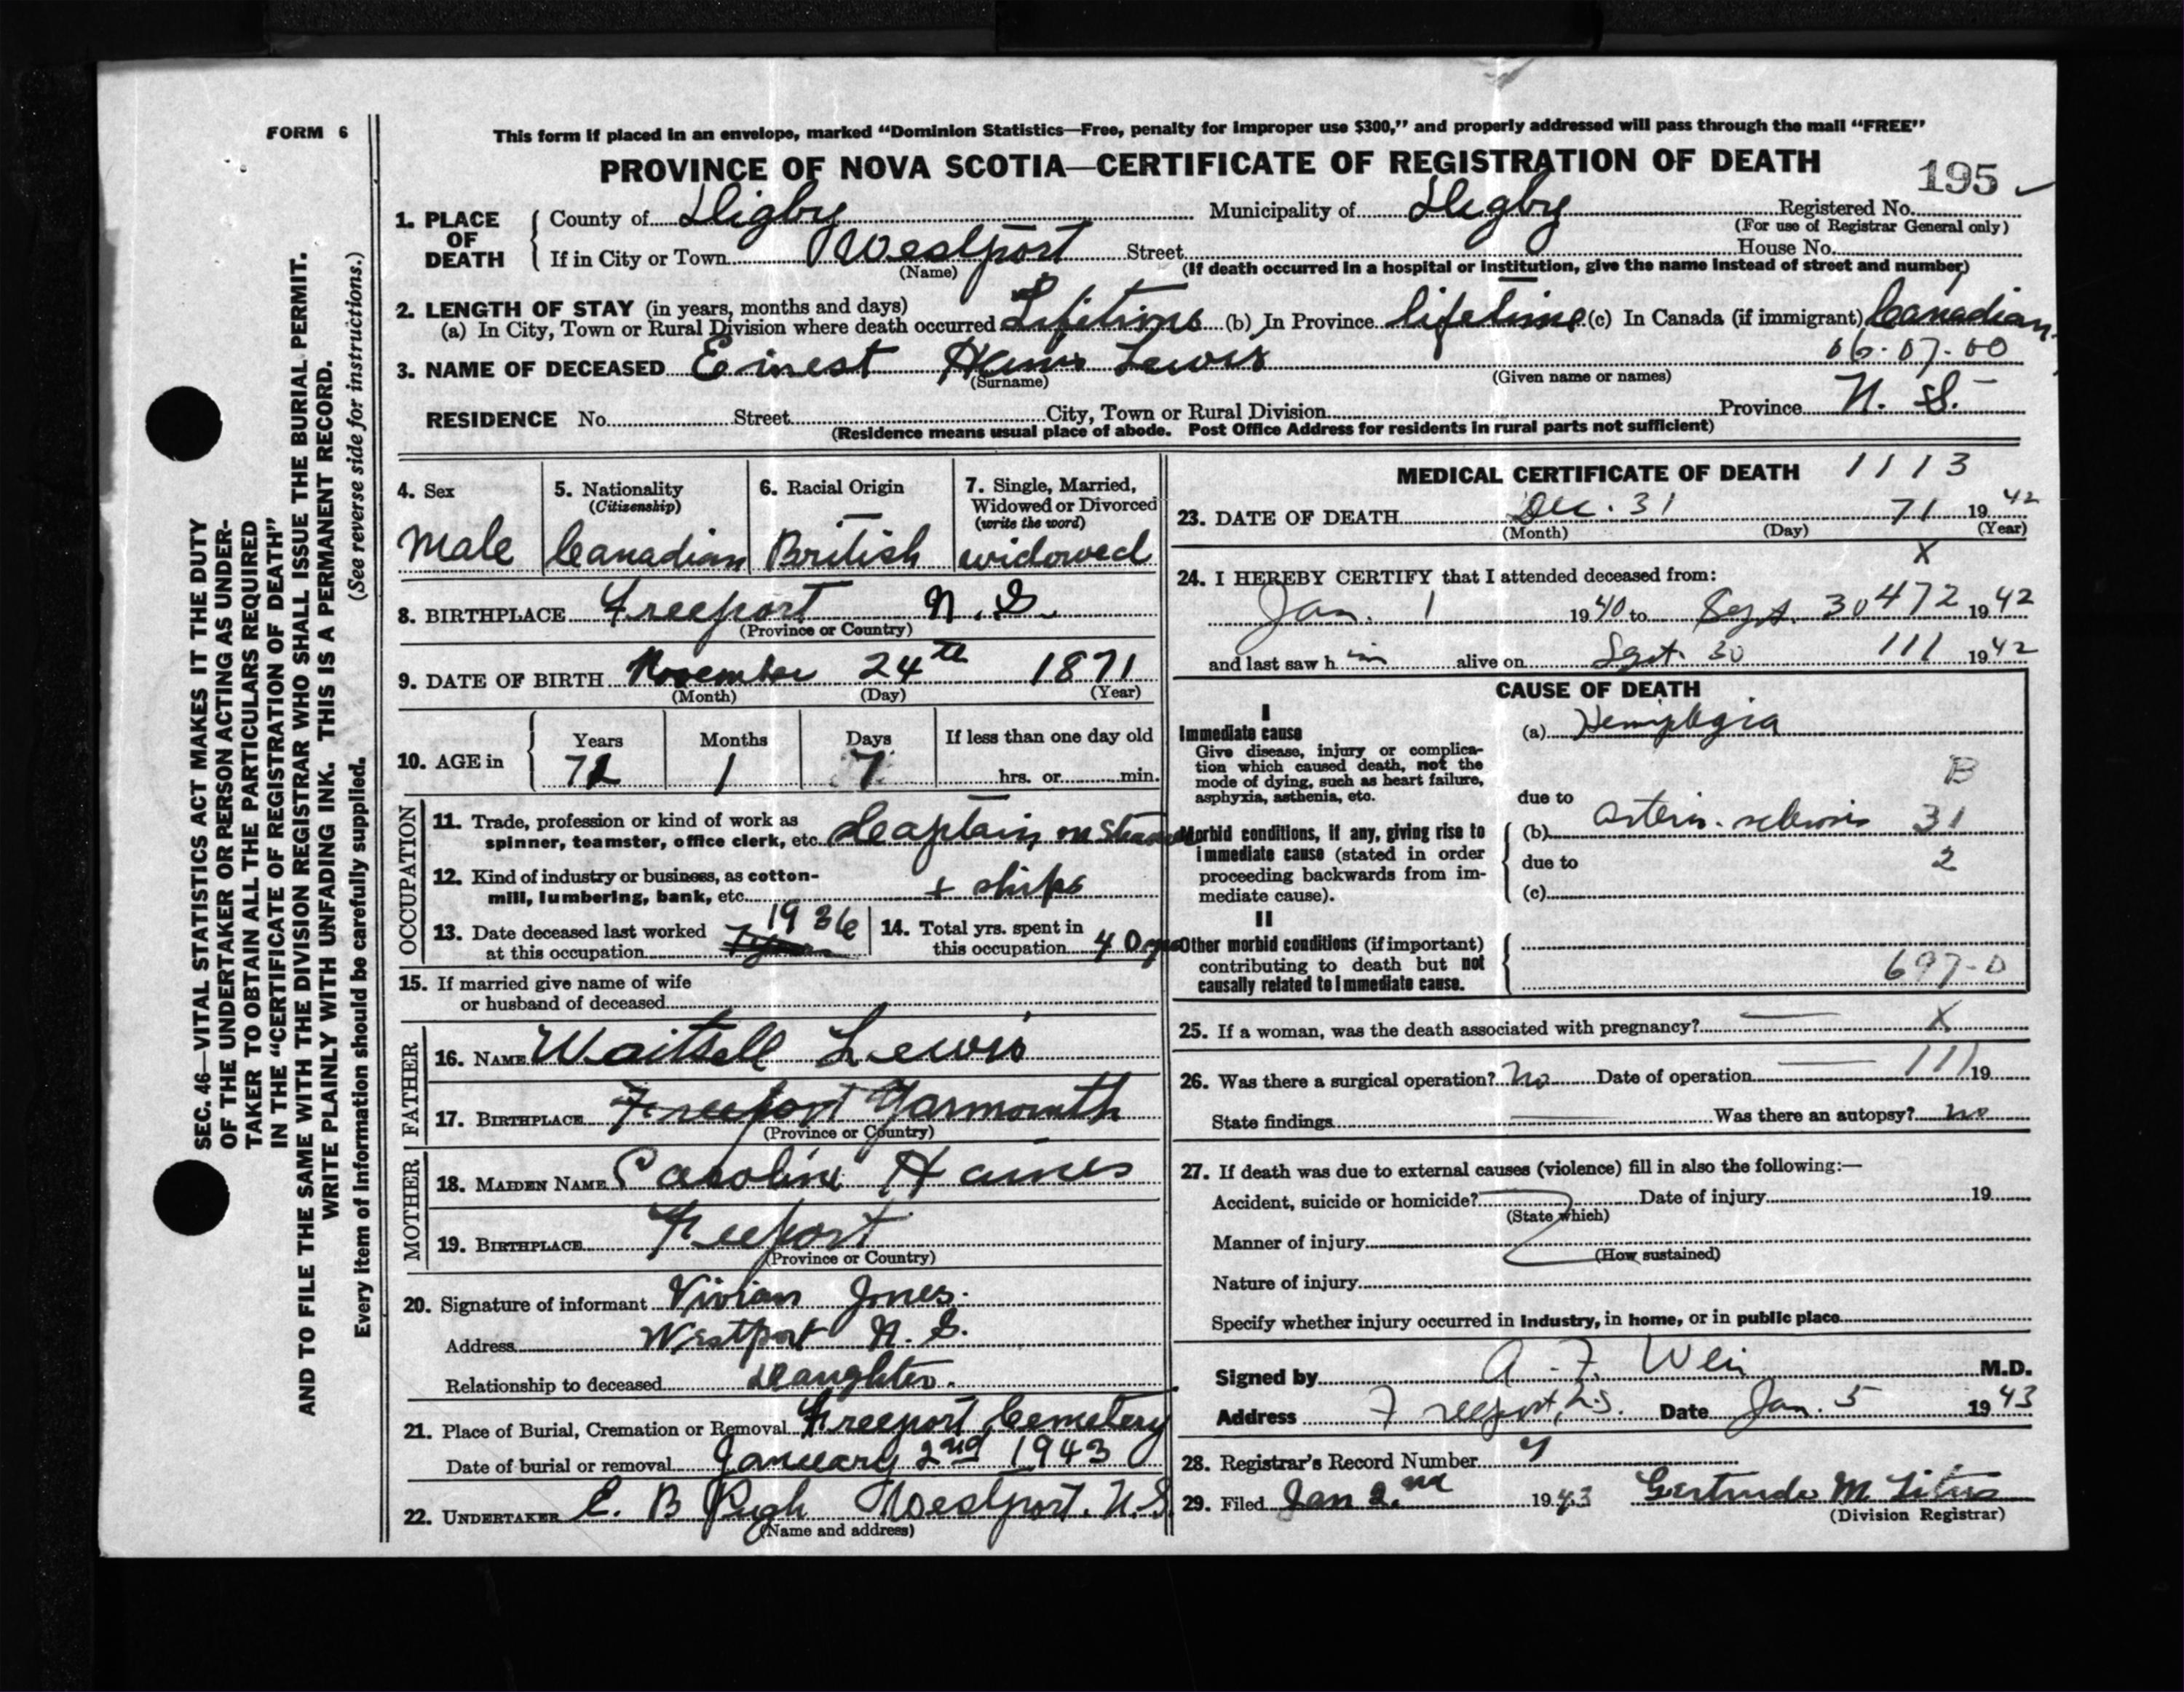 FORM 6
This form if placed in an envelope, marked “Dominion Statistics—Free, penalty for improper use $300,” and properly addressed will pass through the mail “FREE”
PROVINCE OF NOVA SCOTIA—CERTIFICATE OF REGISTRATION OF DEATH
195
1. PLACE OF DEATH County of Digby Municipality of Digby Registered No.
(For use of Registrar General only)
If in City or Town Westport Street House No.
(Name) (If death occurred in a hospital or institution, give the name instead of street and number)
2. LENGTH OF STAY (in years, months and days)
(a) In City, Town or Rural Division where death occurred Lifetime (b) In Province lifetime (c) In Canada (if immigrant) Canadian
3. NAME OF DECEASED Ernest Lewis
(Surname) (Given name or names)
RESIDENCE No. Street City, Town or Rural Division Province N. S.
(Residence means usual place of abode. Post Office Address for residents in rural parts not sufficient)
4. Sex
Male
5. Nationality
(Citizenship)
Canadian
6. Racial Origin
British
7. Single, Married,
Widowed or Divorced
(write the word)
widowed
8. BIRTHPLACE Freeport N. S.
(Province or Country)
9. DATE OF BIRTH November 24th 1871
(Month) (Day) (Year)
10. AGE in Years Months Days If less than one day old
1 7 hrs. or min.
OCCUPATION
11. Trade, profession or kind of work as
spinner, teamster, office clerk, etc. Captain on
12. Kind of industry or business, as cotton-
mill, lumbering, bank, etc. + ships
13. Date deceased last worked
at this occupation 1936
14. Total yrs. spent in
this occupation 40 yrs
15. If married give name of wife
or husband of deceased
FATHER
16. NAME Waitsell Lewis
17. BIRTHPLACE Freeport Yarmouth
(Province or Country)
MOTHER
18. MAIDEN NAME Caroline Haines
19. BIRTHPLACE Freeport
(Province or Country)
20. Signature of informant Vivian Jones.
Address Westport N. S.
Relationship to deceased Daughter.
21. Place of Burial, Cremation or Removal Freeport Cemetery
Date of burial or removal January 2nd 1943
22. UNDERTAKER E. B Pugh Westport. N.S.
(Name and address)
MEDICAL CERTIFICATE OF DEATH 1113
23. DATE OF DEATH Dec. 31 71 1942
(Month) (Day) (Year)
X
24. I HEREBY CERTIFY that I attended deceased from:
Jan. 1 1940 to Sept. 30 472 1942
and last saw h im alive on Sept. 30 111 1942
CAUSE OF DEATH
I
Immediate cause
Give disease, injury or complica-
tion which caused death, not the
mode of dying, such as heart failure,
asphyxia, asthenia, etc.
(a) Hemiplegia
B
due to
Morbid conditions, if any, giving rise to
immediate cause (stated in order
proceeding backwards from im-
mediate cause).
(b) Arterio-sclerosis 31
due to 2
(c)
II
Other morbid conditions (if important)
contributing to death but not
causally related to immediate cause.
697-0
25. If a woman, was the death associated with pregnancy? — X
26. Was there a surgical operation? No Date of operation — 111 19
State findings — Was there an autopsy? no
27. If death was due to external causes (violence) fill in also the following:—
Accident, suicide or homicide? Date of injury 19
(State which)
Manner of injury
(How sustained)
Nature of injury
Specify whether injury occurred in industry, in home, or in public place
Signed by A. F. Weir M.D.
Address Freeport, N.S. Date Jan. 5 1943
28. Registrar's Record Number
29. Filed Jan 2nd 1943 Gertrude M. Titus
(Division Registrar)
SEC. 46—VITAL STATISTICS ACT MAKES IT THE DUTY
OF THE UNDERTAKER OR PERSON ACTING AS UNDER-
TAKER TO OBTAIN ALL THE PARTICULARS REQUIRED
IN THE “CERTIFICATE OF REGISTRATION OF DEATH”
AND TO FILE THE SAME WITH THE DIVISION REGISTRAR WHO SHALL ISSUE THE BURIAL PERMIT.
WRITE PLAINLY WITH UNFADING INK. THIS IS A PERMANENT RECORD.
Every item of information should be carefully supplied. (See reverse side for instructions.)